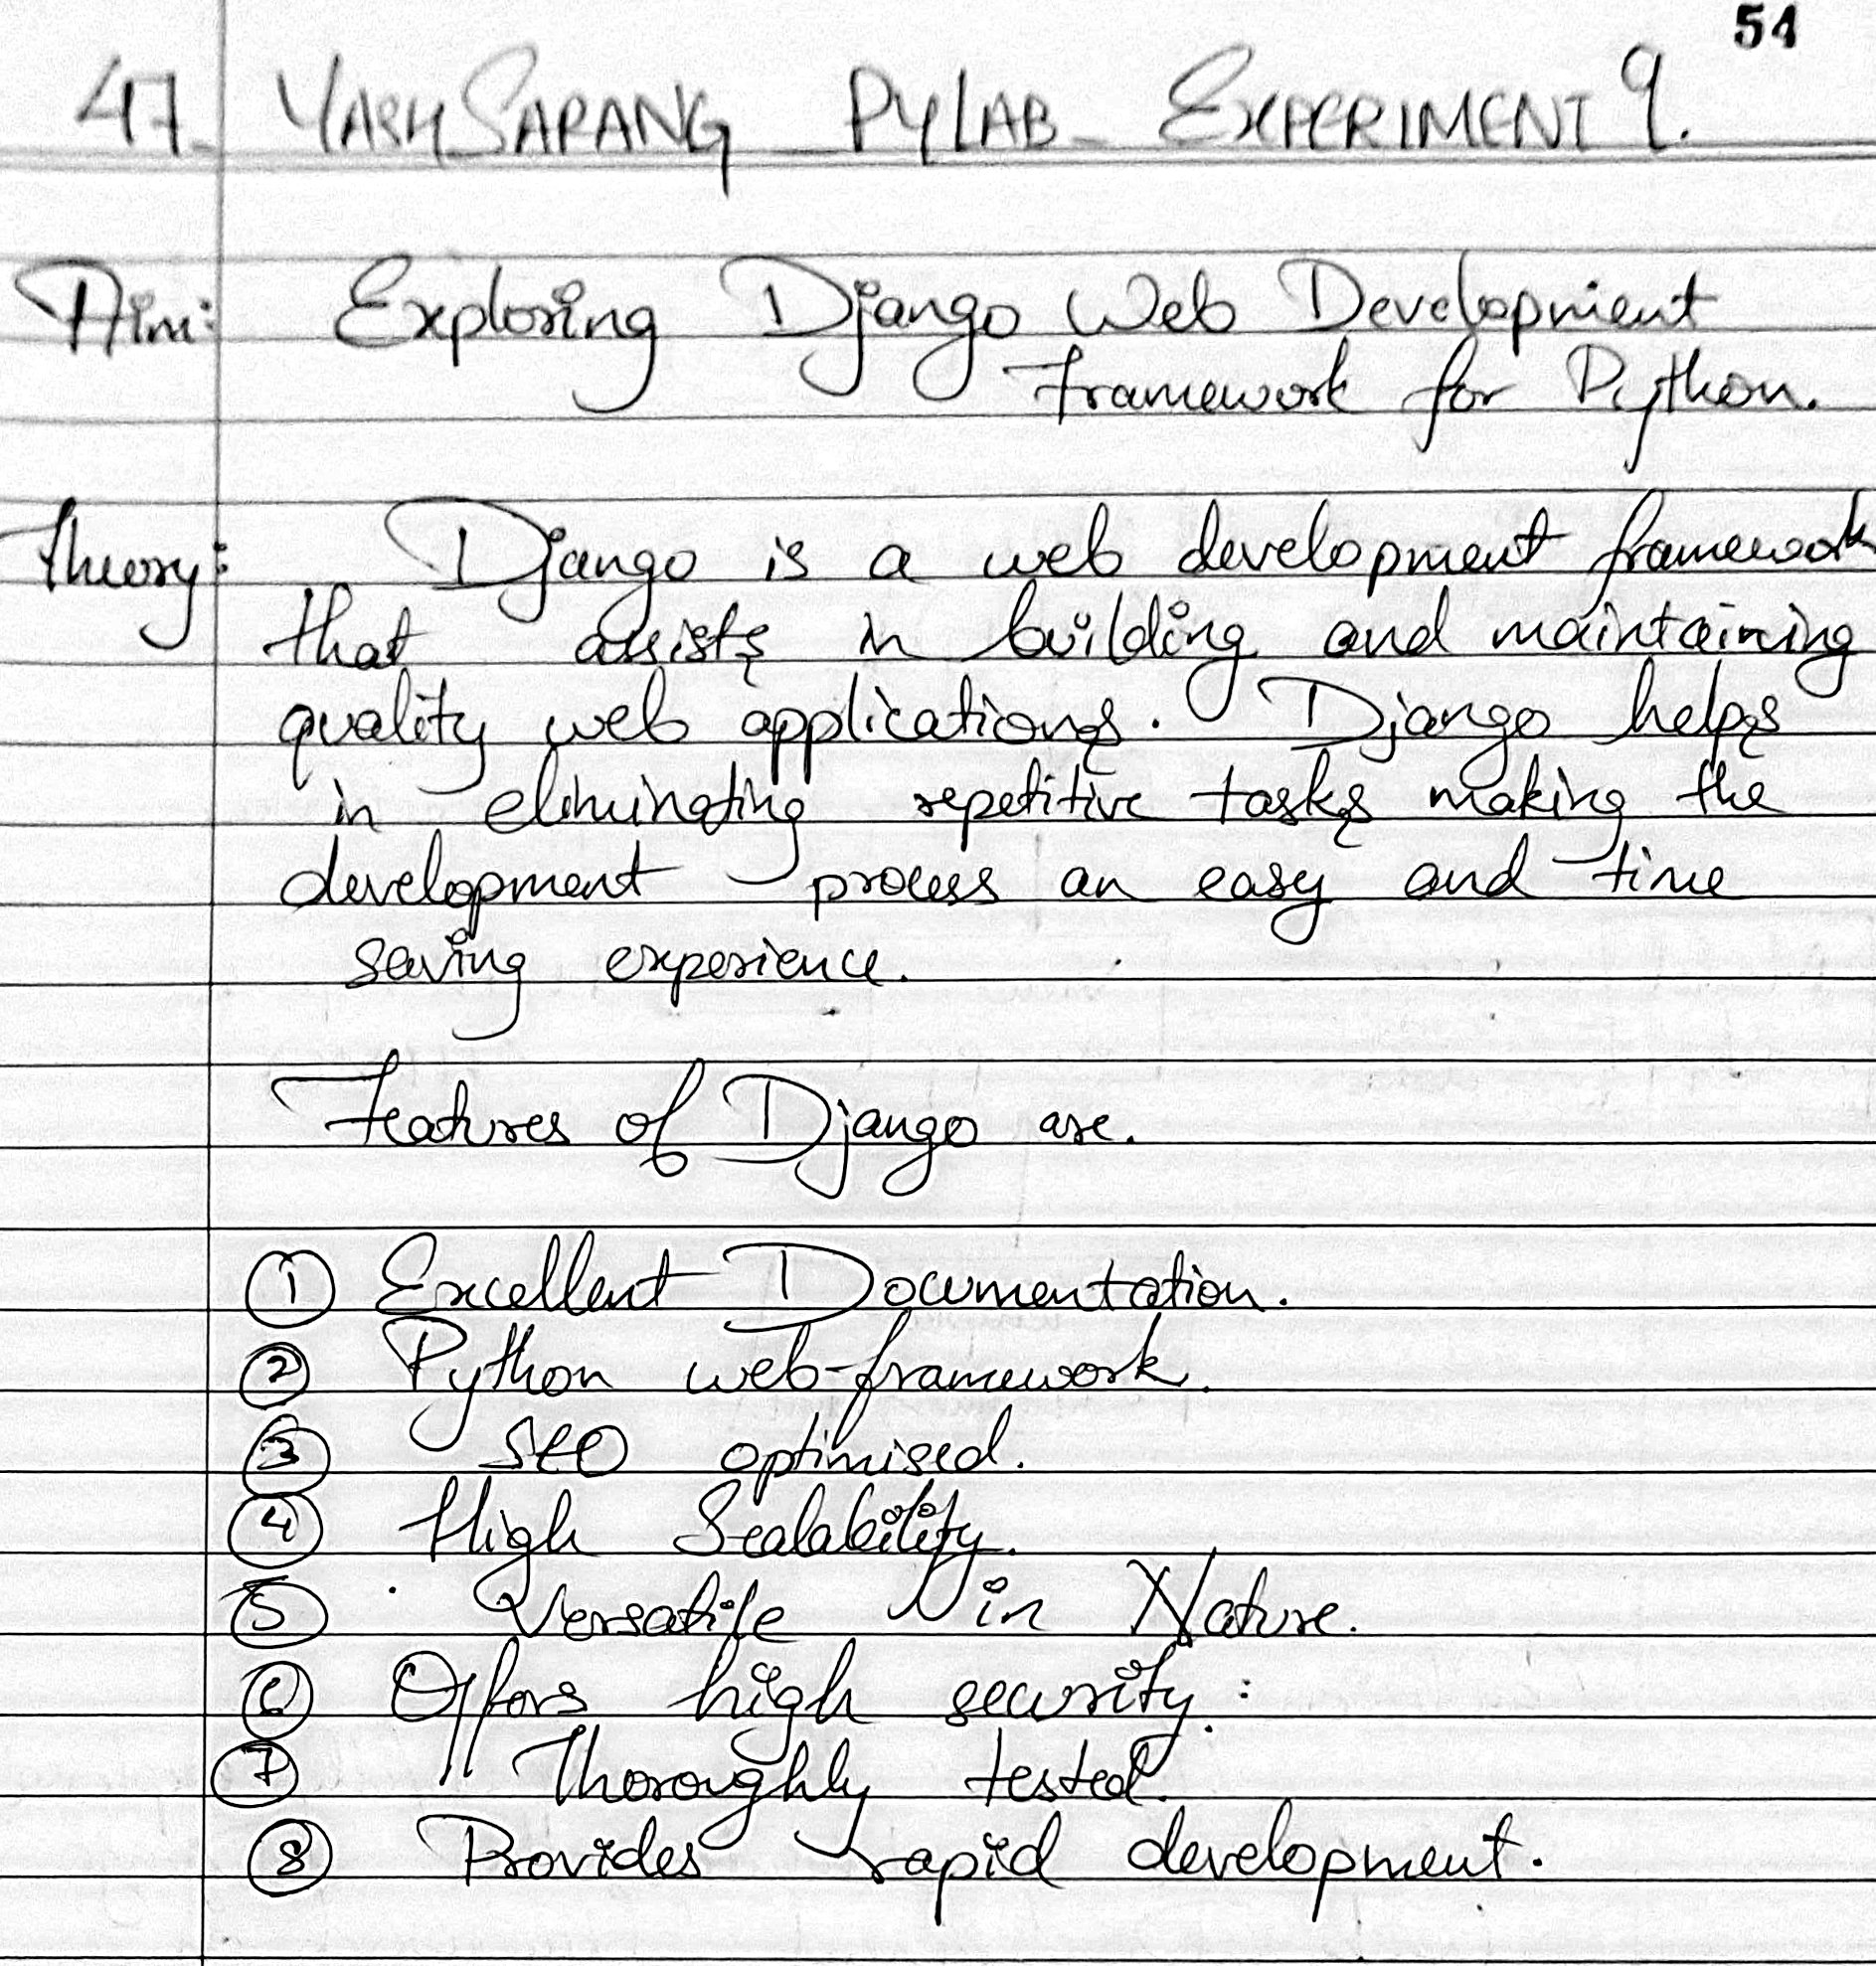 54
47 YASH SARANG PYLAB EXPERIMENT 9.
Aim: Exploring Django Web Development
Framework for Python.
Theory: Django is a web development framework
that assists in building and maintaining
quality web applications. Django helps
in eliminating repetitive tasks making the
development process an easy and time
saving experience.
Features of Django are.
① Excellent Documentation.
② Python web-framework.
③ SEO optimised.
④ High Scalability.
⑤ Versatile in Nature.
⑥ Offers high security.
⑦ Thoroughly tested.
⑧ Provides rapid development.